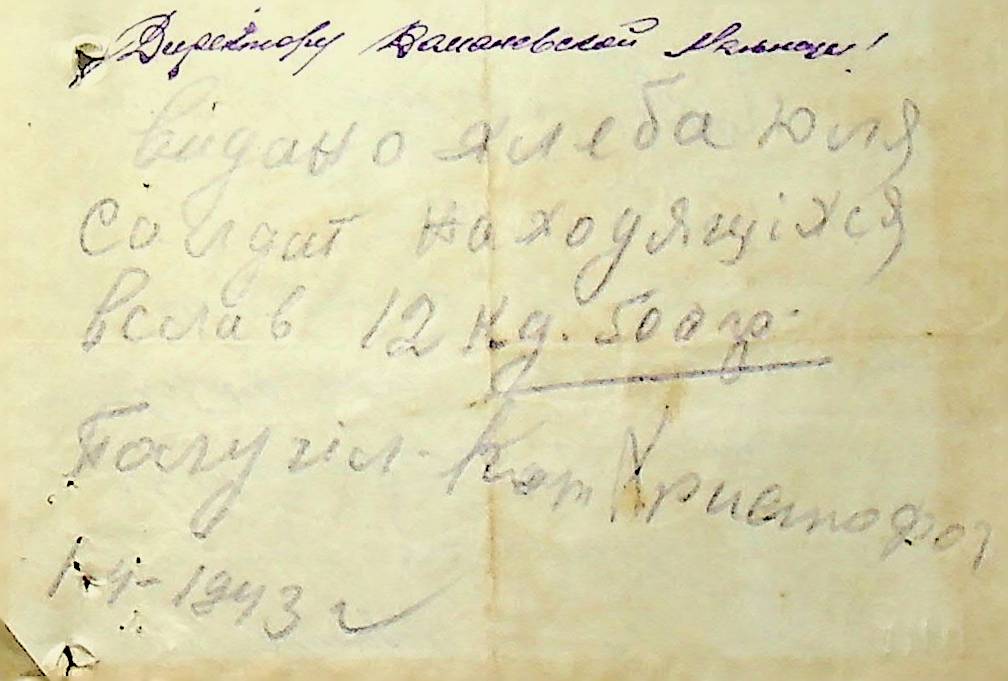 Директору Вамановской мельницы!
видано хлеба юля
салдат находящіхся
вслав 12 кг. 500 гр.
Палучіл. Кот Христофор
1-4-1943